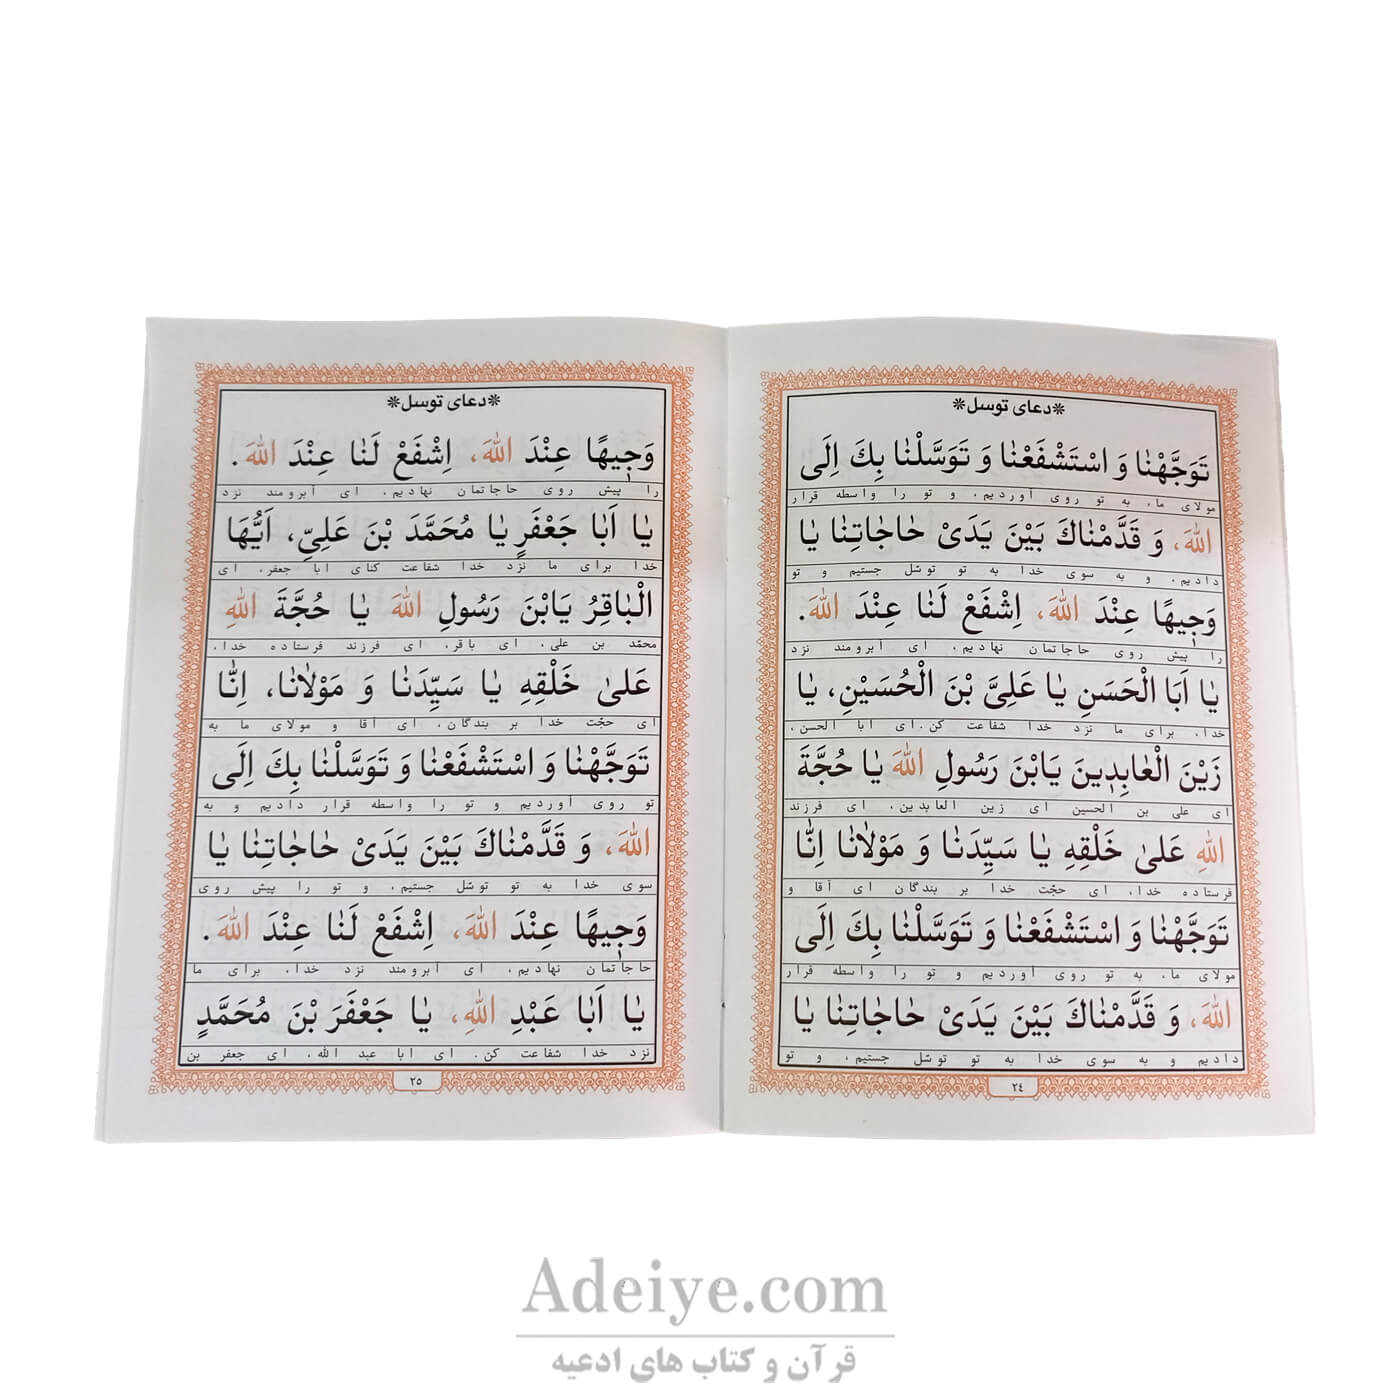 ❊دعای توسل❊
تَوَجَّهْنٰا وَ اسْتَشْفَعْنٰا وَ تَوَسَّلْنٰا بِكَ اِلَی
مولای ما، به تو روی آوردیم، و تو را واسطه قرار
اللهِ، وَ قَدَّمْنٰاكَ بَیْنَ یَدَیْ حٰاجٰاتِنٰا یٰا
دادیم، و به سوی خدا به تو توسّل جستیم و تو
وَجٖیهًا عِنْدَ اللهِ، اِشْفَعْ لَنٰا عِنْدَ اللهِ.
را پیش روی حاجاتمان نهادیم، ای آبرومند نزد
یٰا اَبَا الْحَسَنِ یٰا عَلِیَّ بْنَ الْحُسَیْنِ، یٰا
خدا، برای ما نزد خدا شفاعت کن. ای ابا الحسن،
زَیْنَ الْعٰابِدٖینَ یَابْنَ رَسُولِ اللهِ یٰا حُجَّةَ
ای علی بن الحسین ای زین العابدین، ای فرزند
اللهِ عَلیٰ خَلْقِهِ یٰا سَیِّدَنٰا وَ مَوْلاٰنٰا اِنّٰا
فرستاده خدا، ای حجّت خدا بر بندگان ای آقا و
تَوَجَّهْنٰا وَ اسْتَشْفَعْنٰا وَ تَوَسَّلْنٰا بِكَ اِلَی
مولای ما، به تو روی آوردیم و تو را واسطه قرار
اللهِ، وَ قَدَّمْنٰاكَ بَیْنَ یَدَیْ حٰاجٰاتِنٰا یٰا
دادیم و به سوی خدا به تو توسّل جستیم، و تو
٢٤
❊دعای توسل❊
وَجٖیهًا عِنْدَ اللهِ، اِشْفَعْ لَنٰا عِنْدَ اللهِ.
را پیش روی حاجاتمان نهادیم، ای آبرومند نزد
یٰا اَبٰا جَعْفَرٍ یٰا مُحَمَّدَ بْنَ عَلِیٍّ، اَیُّهَا
خدا برای ما نزد خدا شفاعت کنای ابا جعفر، ای
الْبٰاقِرُ یَابْنَ رَسُولِ اللهِ یٰا حُجَّةَ اللهِ
محمّد بن علی، ای باقر، ای فرزند فرستاده خدا،
عَلیٰ خَلْقِهِ یٰا سَیِّدَنٰا وَ مَوْلاٰنٰا، اِنّٰا
ای حجّت خدا بر بندگان، ای آقا و مولای ما به
تَوَجَّهْنٰا وَ اسْتَشْفَعْنٰا وَ تَوَسَّلْنٰا بِكَ اِلَی
تو روی آوردیم و تو را واسطه قرار دادیم و به
اللهِ، وَ قَدَّمْنٰاكَ بَیْنَ یَدَیْ حٰاجٰاتِنٰا یٰا
سوی خدا به تو توسّل جستیم، و تو را پیش روی
وَجٖیهًا عِنْدَ اللهِ، اِشْفَعْ لَنٰا عِنْدَ اللهِ.
حاجاتمان نهادیم، ای آبرومند نزد خدا، برای ما
یٰا اَبٰا عَبْدِ اللهِ، یٰا جَعْفَرَ بْنَ مُحَمَّدٍ
نزد خدا شفاعت کن. ای ابا عبد الله، ای جعفر بن
٢٥
Adeiye.com
قرآن و کتاب های ادعیه